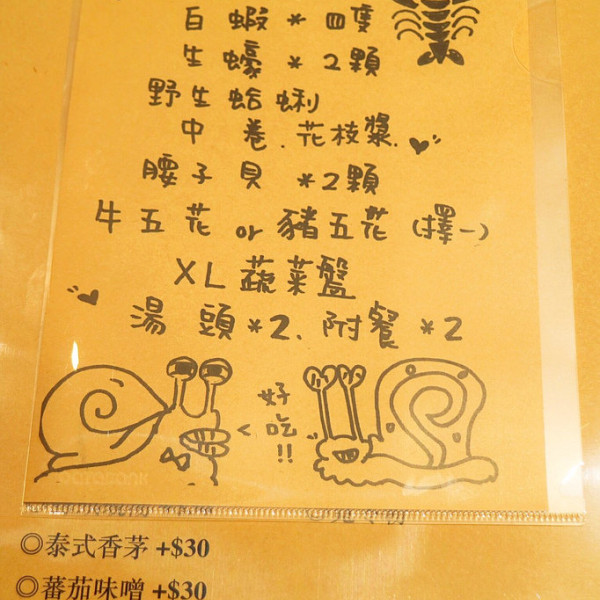 白蝦*四隻
生蠔*2顆
野生蛤蜊
中卷.花枝漿.
腰子貝*2顆
牛五花 or 豬五花(擇一)
XL蔬菜盤
湯頭*2、附餐*2
好吃!!
◎泰式香茅 +$30
◎蕃茄味噌 +$30